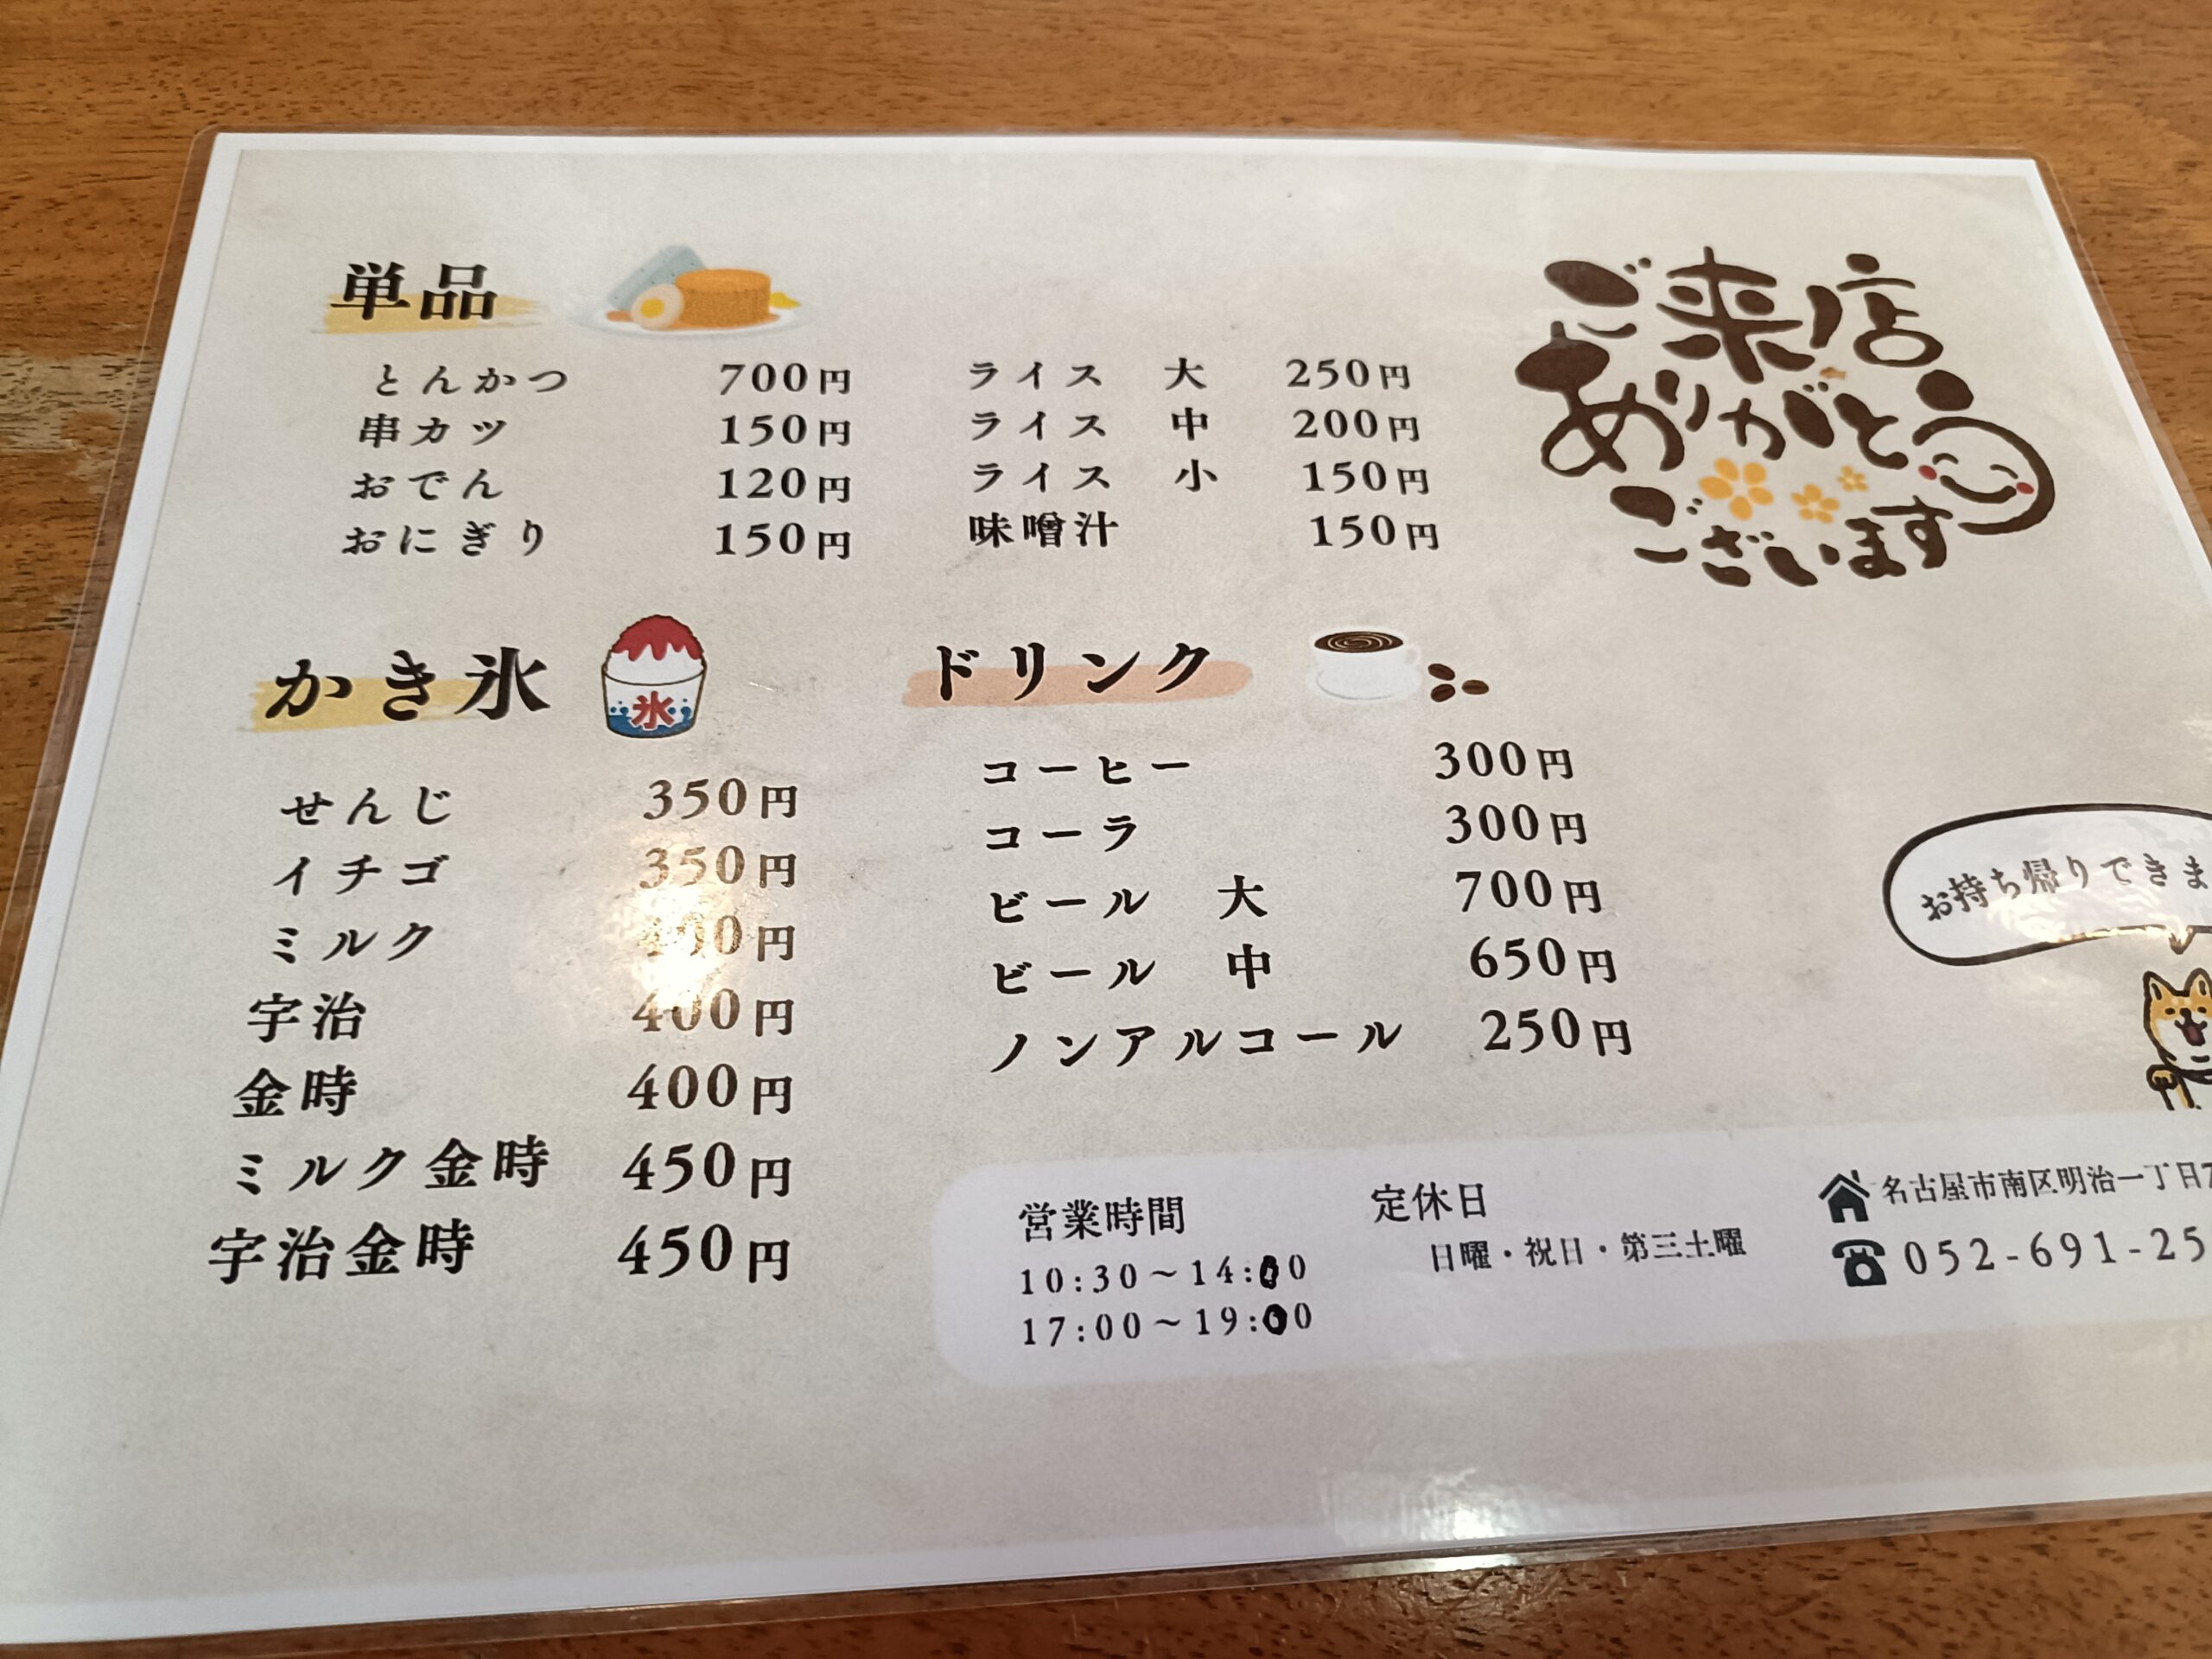 単品
とんかつ 700円
串カツ 150円
おでん 120円
おにぎり 150円
ライス 大 250円
ライス 中 200円
ライス 小 150円
味噌汁 150円
ご来店
ありがとう
ございます
かき氷
氷
せんじ 350円
イチゴ 350円
ミルク 円
宇治 400円
金時 400円
ミルク金時 450円
宇治金時 450円
ドリンク
コーヒー 300円
コーラ 300円
ビール 大 700円
ビール 中 650円
ノンアルコール 250円
お持ち帰りできま
営業時間
10:30～14:00
17:00～19:00
定休日
日曜・祝日・第三土曜
名古屋市南区明治一丁目7
052-691-25